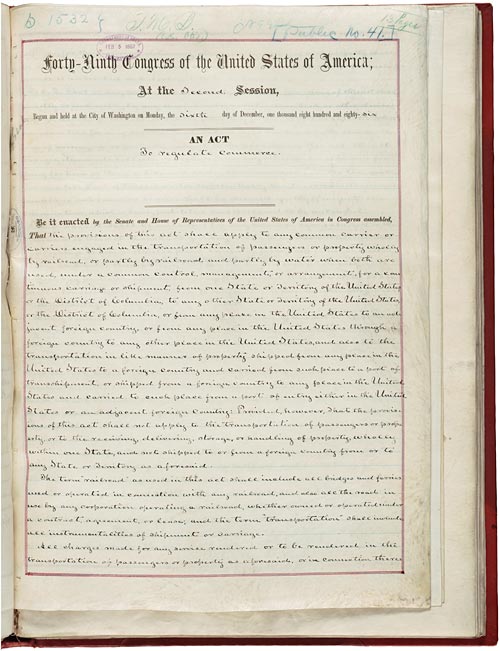 D 1532
Public No. 41.
FEB 5 1887
Forty-Ninth Congress of the United States of America;
At the Second Session,
Begun and held at the City of Washington on Monday, the sixth day of December, one thousand eight hundred and eighty-six
AN ACT
To regulate commerce.
Be it enacted by the Senate and House of Representatives of the United States of America in Congress assembled,
That the provisions of this act shall apply to any common carrier or
carriers engaged in the transportation of passengers or property wholly
by railroad, or partly by railroad and partly by water when both are
used, under a common control, management, or arrangement, for a con
tinuous carriage or shipment, from one State or Territory of the United States,
or the District of Columbia, to any other State or Territory of the United States,
or the District of Columbia, or from any place in the United States to an ad
jacent foreign country, or from any place in the United States through a
foreign country to any other place in the United States, and also to the
transportation in like manner of property shipped from any place in the
United States to a foreign country and carried from such place to a port of
transshipment, or shipped from a foreign country to any place in the United
States and carried to such place from a port of entry either in the United
States or an adjacent foreign country: Provided, however, That the provis
ions of this act shall not apply to the transportation of passengers or prop
erty, or to the receiving, delivering, storage, or handling of property, wholly
within one State, and not shipped to or from a foreign country from or to
any State or Territory as aforesaid.
The term "railroad" as used in this act shall include all bridges and ferries
used or operated in connection with any railroad, and also all the road in
use by any corporation operating a railroad, whether owned or operated under
a contract, agreement, or lease; and the term "transportation" shall include
all instrumentalities of shipment or carriage.
All charges made for any service rendered or to be rendered in the
transportation of passengers or property as aforesaid, or in connection there